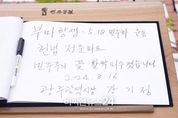 부마항쟁 - 5.18 민주화 운동
헌법 전문화로
민주주의 꽃 활짝 피우겠습니다
2024. 8. 16
광주광역시장 강기정